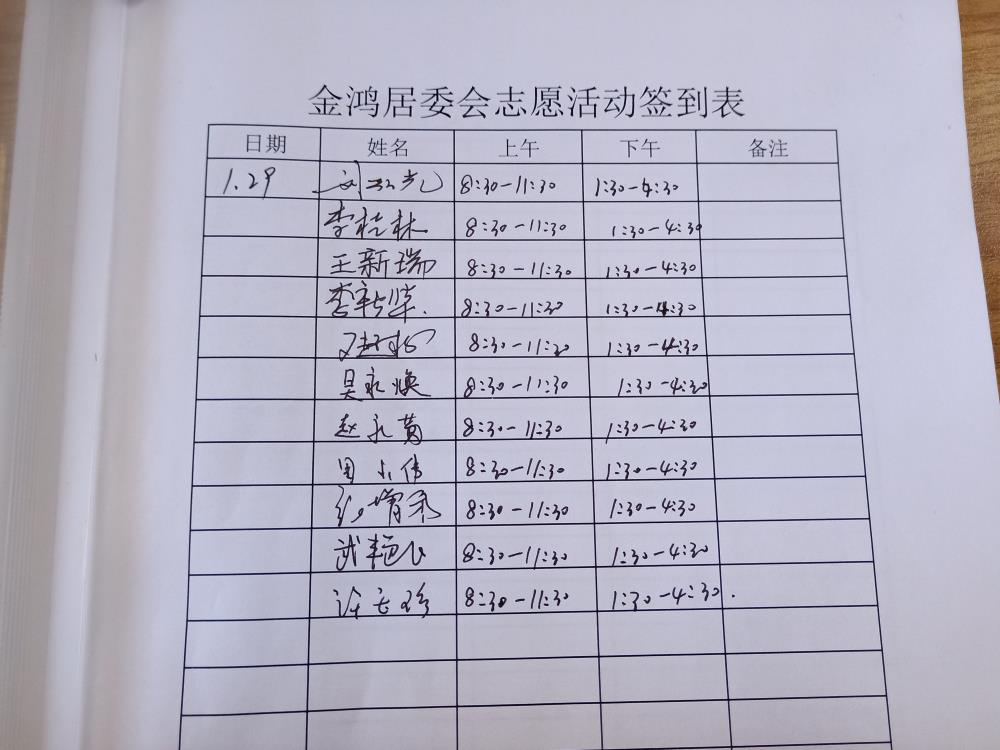 金鸿居委会志愿活动签到表
日期 姓名 上午 下午 备注
1.29 8:30-11:30 1:30-4:30
李桂林 8:30-11:30 1:30-4:30
王新瑞 8:30-11:30 1:30-4:30
李新荣. 8:30-11:30 1:30-4:30
8:30-11:30 1:30-4:30
吴永焕 8:30-11:30 1:30-4:30
赵永黄 8:30-11:30 1:30-4:30
周小伟 8:30-11:30 1:30-4:30
8:30-11:30 1:30-4:30
武艳 8:30-11:30 1:30-4:30
许 8:30-11:30 1:30-4:30.